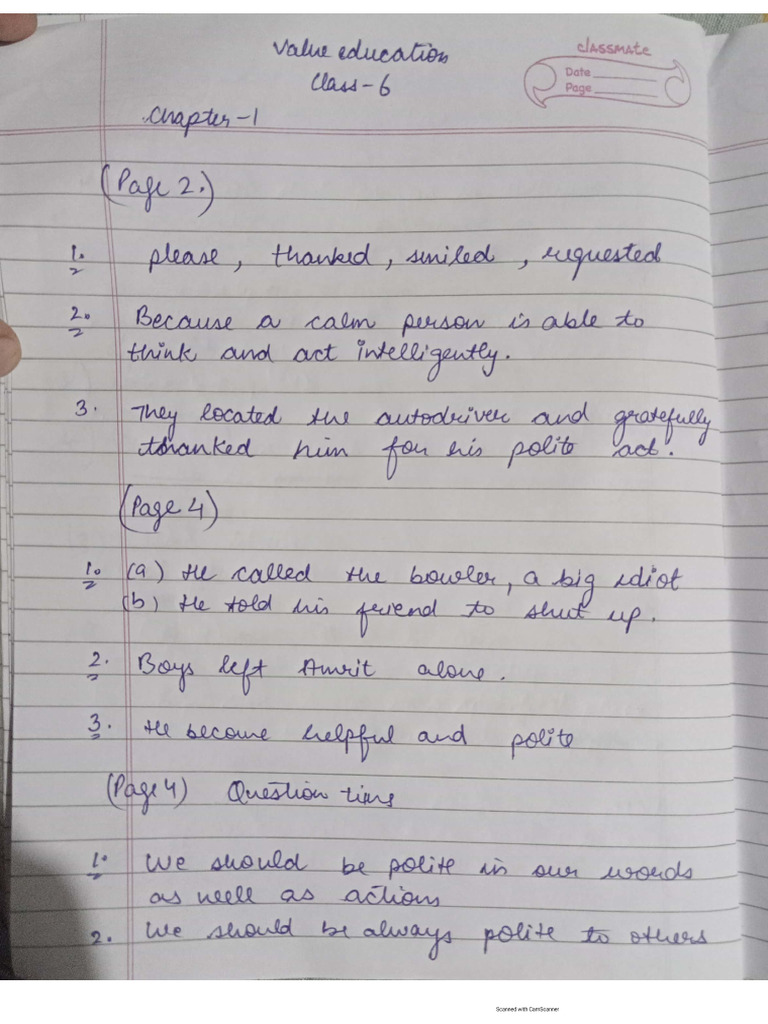 Value education
classmate
Class-6
Date
Page
Chapter-1
(Page 2.)
1. please, thanked, smiled, requested
2. Because a calm person is able to
think and act intelligently.
3. They located the autodriver and gratefully
thanked him for his polite act.
(Page 4)
1. (a) He called the bowler, a big idiot
(b) He told his friend to shut up.
2. Boys left Amrit alone.
3. He become helpful and polite
(Page 4) Question time
1. We should be polite in our words
as well as actions
2. We should be always polite to others
Scanned with CamScanner